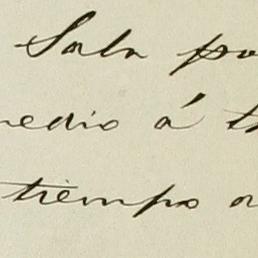 Sala po
medio á t
tiempo o